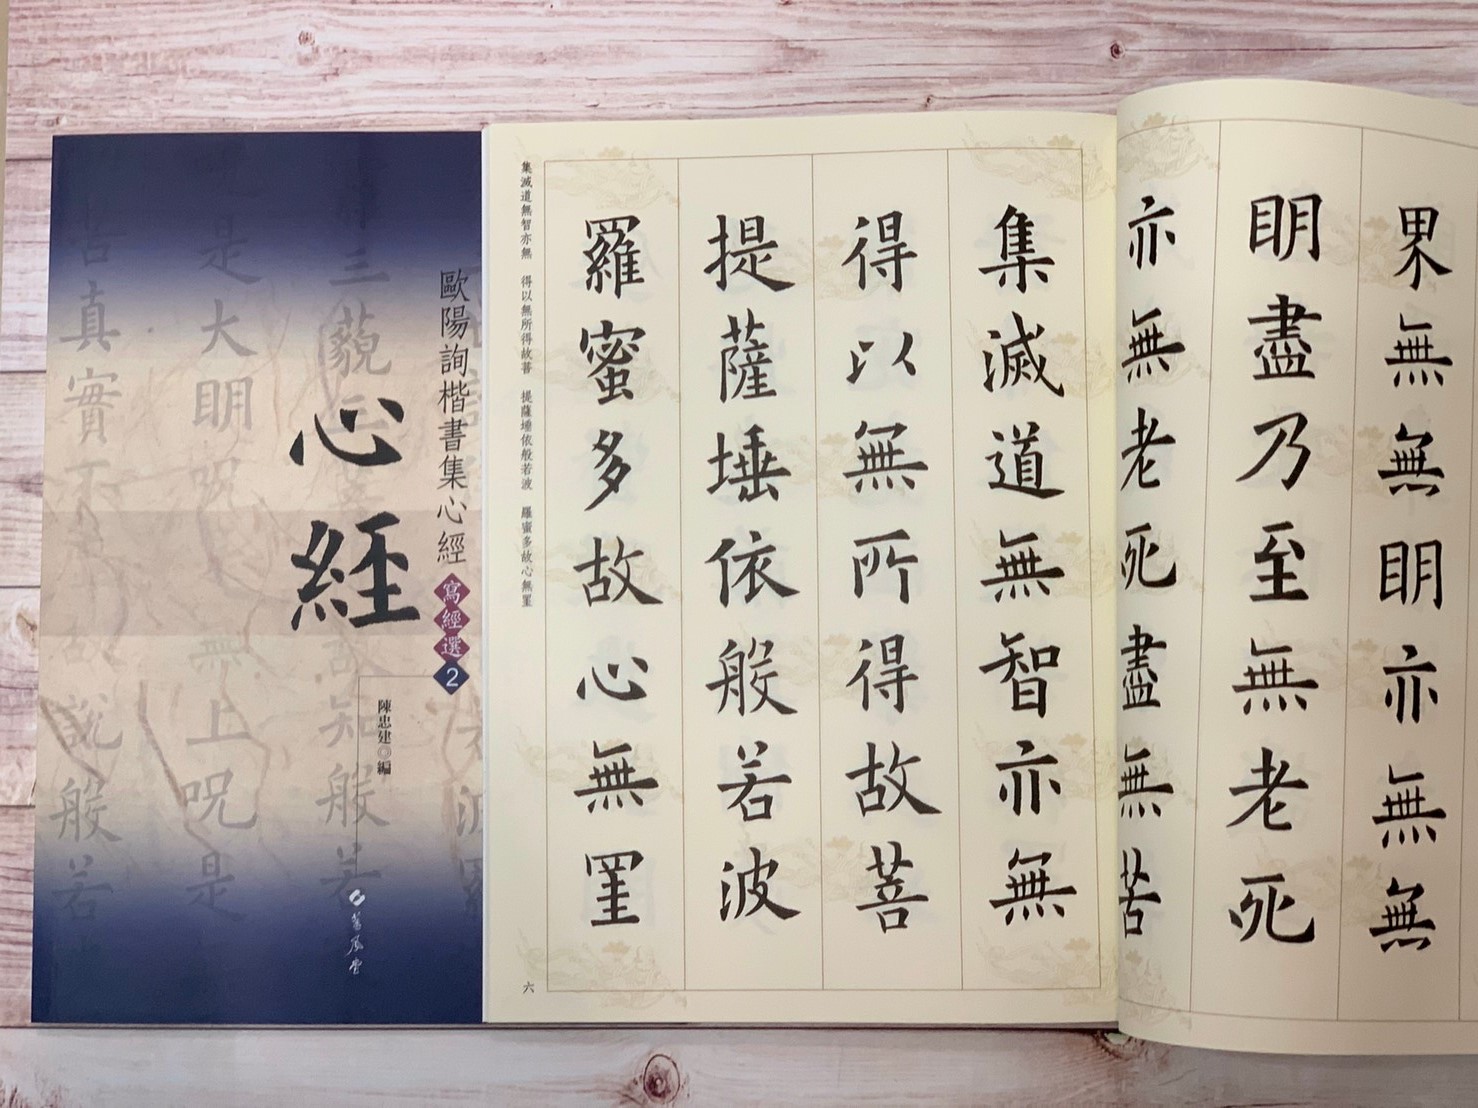 歐陽詢楷書集心經
寫經選2
心經
陳忠建◎編
蕙風堂
界無無明亦無無
明盡乃至無老死
亦無老死盡無苦
集滅道無智亦無
得以無所得故菩
提薩埵依般若波
羅蜜多故心無罣
集滅道無智亦無 得以無所得故菩 提薩埵依般若波 羅蜜多故心無罣
六
三藐三
知般若
是大明呪
無上呪是
苦真實不
故說般若